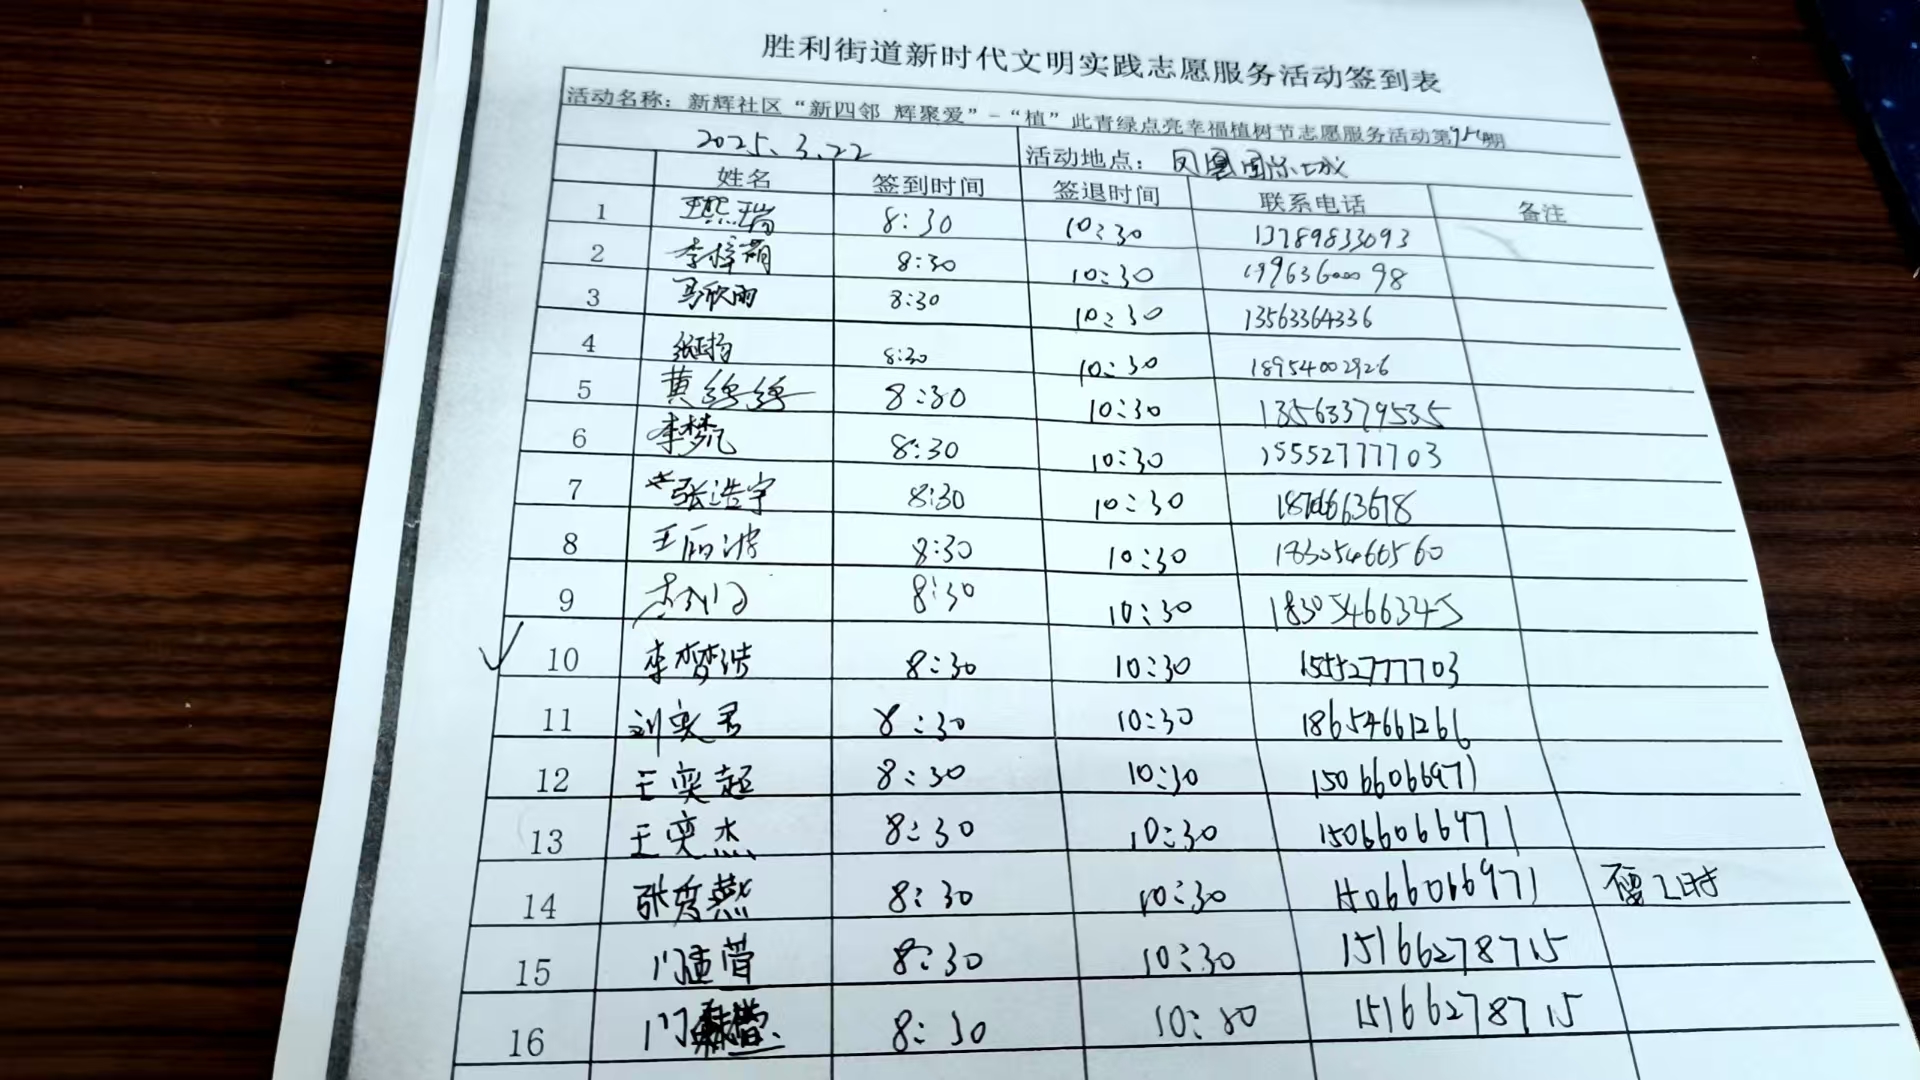 胜利街道新时代文明实践志愿服务活动签到表
活动名称：新辉社区“新四邻 辉聚爱”-“植”此青绿点亮幸福植树节志愿服务活动第 期
2025.3.22 活动地点：凤凰国际城
姓名 签到时间 签退时间 联系电话 备注
1 王熙瑞 8:30 10:30 13789833093
2 李梓萌 8:30 10:30
3 马欣雨 8:30 10:30 13563364336
4 8:30 10:30 18954002926
5 黄婷婷 8:30 10:30 13563379535
6 李梦凡 8:30 10:30 15552777703
7 张浩宇 8:30 10:30
8 王丽波 8:30 10:30 18305460560
9 8:30 10:30 18305466345
10 李梦浩 8:30 10:30 15552777703
11 刘奕君 8:30 10:30 18654661266
12 王奕超 8:30 10:30 15066066971
13 王奕杰 8:30 10:30 15066066971
14 张秀燕 8:30 10:30 15066066971 不要工时
15 8:30 10:30 15166278715
16 门 8:30 15166278715